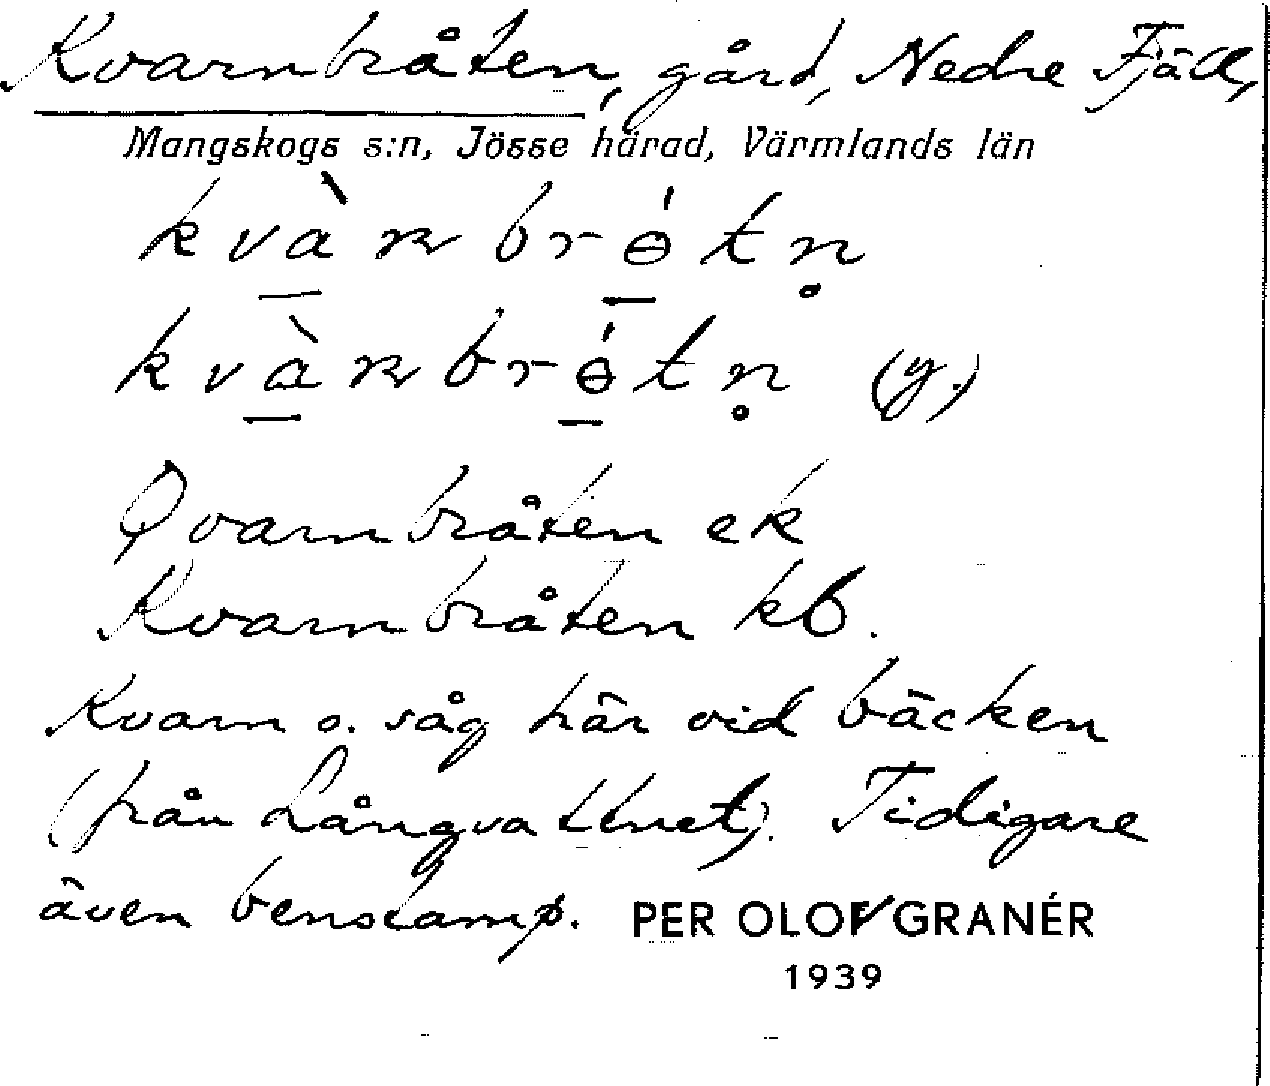 Kvarnbråten, gård, Nedre Fjäll,
Mangskogs s:n, Jösse härad, Värmlands län
kvàɳbrɵ́tn̥
kvàɳbrɵ́tn̥ (y.)
Qvarnbråten ek
Kvarnbråten kb.
Kvarn o. såg här vid bäcken
(från Långvattnet). Tidigare
även benstamp. PER OLOF GRANÉR
1939